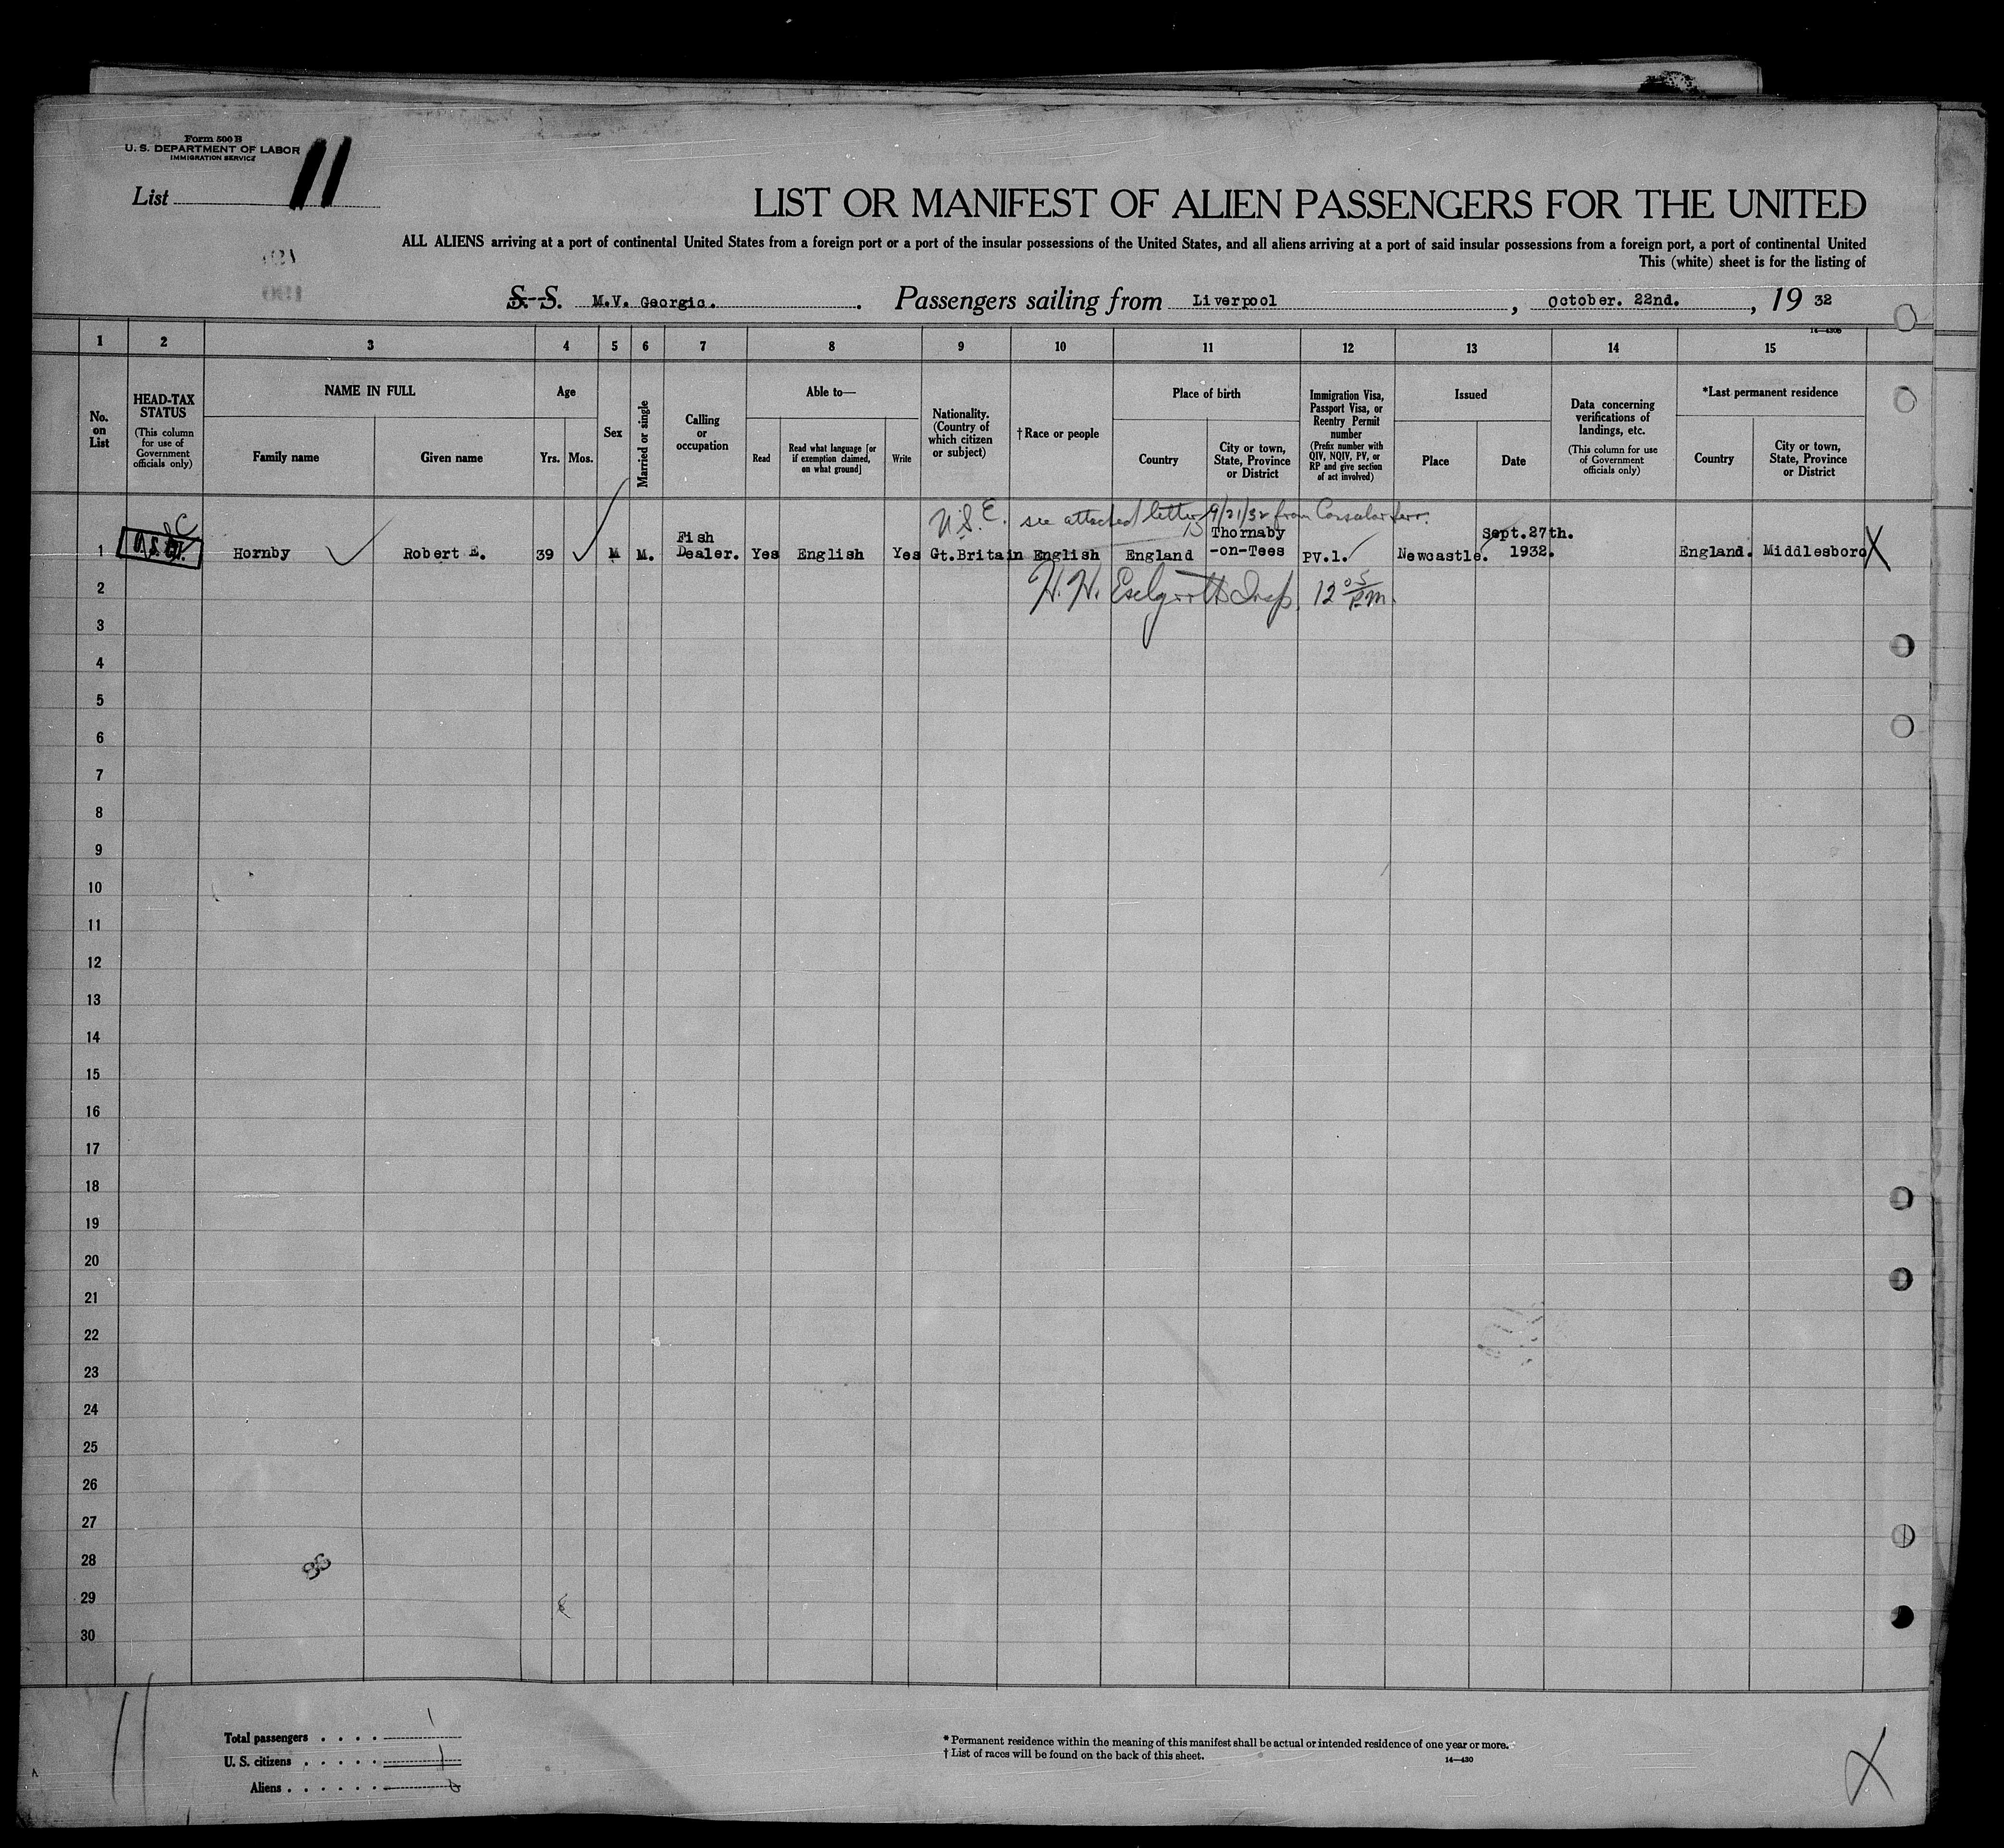 Form 500 B
U. S. DEPARTMENT OF LABOR
IMMIGRATION SERVICE
List 11
LIST OR MANIFEST OF ALIEN PASSENGERS FOR THE UNITED
ALL ALIENS arriving at a port of continental United States from a foreign port or a port of the insular possessions of the United States, and all aliens arriving at a port of said insular possessions from a foreign port, a port of continental United
This (white) sheet is for the listing of
S. S. M.V. Georgic. Passengers sailing from Liverpool, October. 22nd., 19 32
14—430B
1 2 3 4 5 6 7 8 9 10 11 12 13 14 15
No. on List
HEAD-TAX STATUS (This column for use of Government officials only)
NAME IN FULL
Family name
Given name
Age
Yrs. Mos.
Sex
Married or single
Calling or occupation
Able to—
Read
Read what language [or if exemption claimed, on what ground]
Write
Nationality. (Country of which citizen or subject)
† Race or people
Place of birth
Country
City or town, State, Province or District
Immigration Visa, Passport Visa, or Reentry Permit number (Prefix number with QIV, NQIV, PV, or RP and give section of act involved)
Issued
Place
Date
Data concerning verifications of landings, etc. (This column for use of Government officials only)
*Last permanent residence
Country
City or town, State, Province or District
see attached letter 9/21/32 from Consular
1 Hornby Robert E. 39 M M. Fish Dealer. Yes English Yes Gt.Britain English England Thornaby -on-Tees PV.1. Newcastle. Sept.27th. 1932. England. Middlesboro X
2 H. H. Insp. 12 05 P.M.
3
4
5
6
7
8
9
10
11
12
13
14
15
16
17
18
19
20
21
22
23
24
25
26
27
28
29
30
Total passengers . . . . 1
U. S. citizens . . . . . 1
Aliens . . . . . .
* Permanent residence within the meaning of this manifest shall be actual or intended residence of one year or more.
† List of races will be found on the back of this sheet.
14—430
X